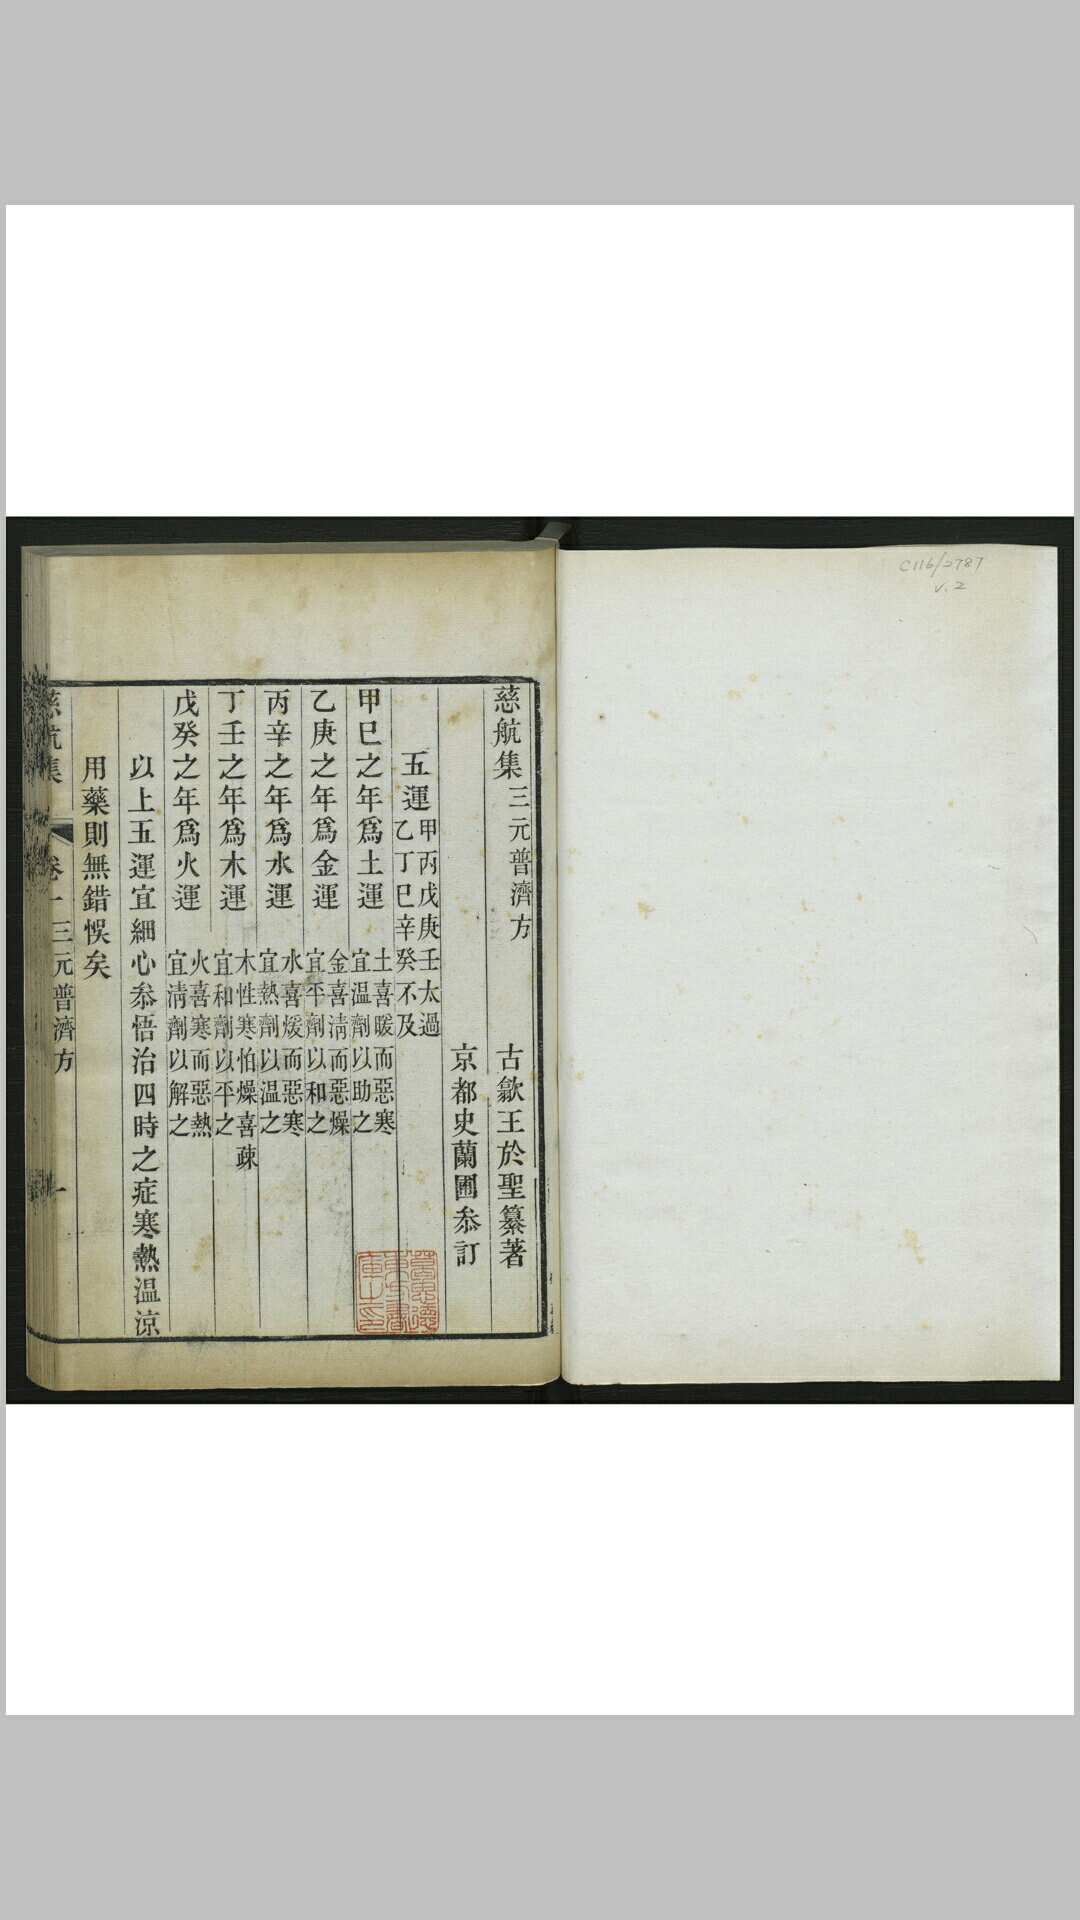 C116/2787
v.2
慈航集三元普濟方
古歙王於聖纂著
京都史蘭圃叅訂
五運
甲丙戊庚壬太過
乙丁巳辛癸不及
甲巳之年爲土運
土喜暖而惡寒
宜温劑以助之
乙庚之年爲金運
金喜淸而惡燥
宜平劑以和之
丙辛之年爲水運
水喜煖而惡寒
宜熱劑以温之
丁壬之年爲木運
木性寒怕燥喜疎
宜和劑以平之
戊癸之年爲火運
火喜寒而惡熱
宜淸劑以解之
以上五運宜細心叅悟治四時之症寒熱温涼
用藥則無錯悞矣
慈航集
卷一三元普濟方
一